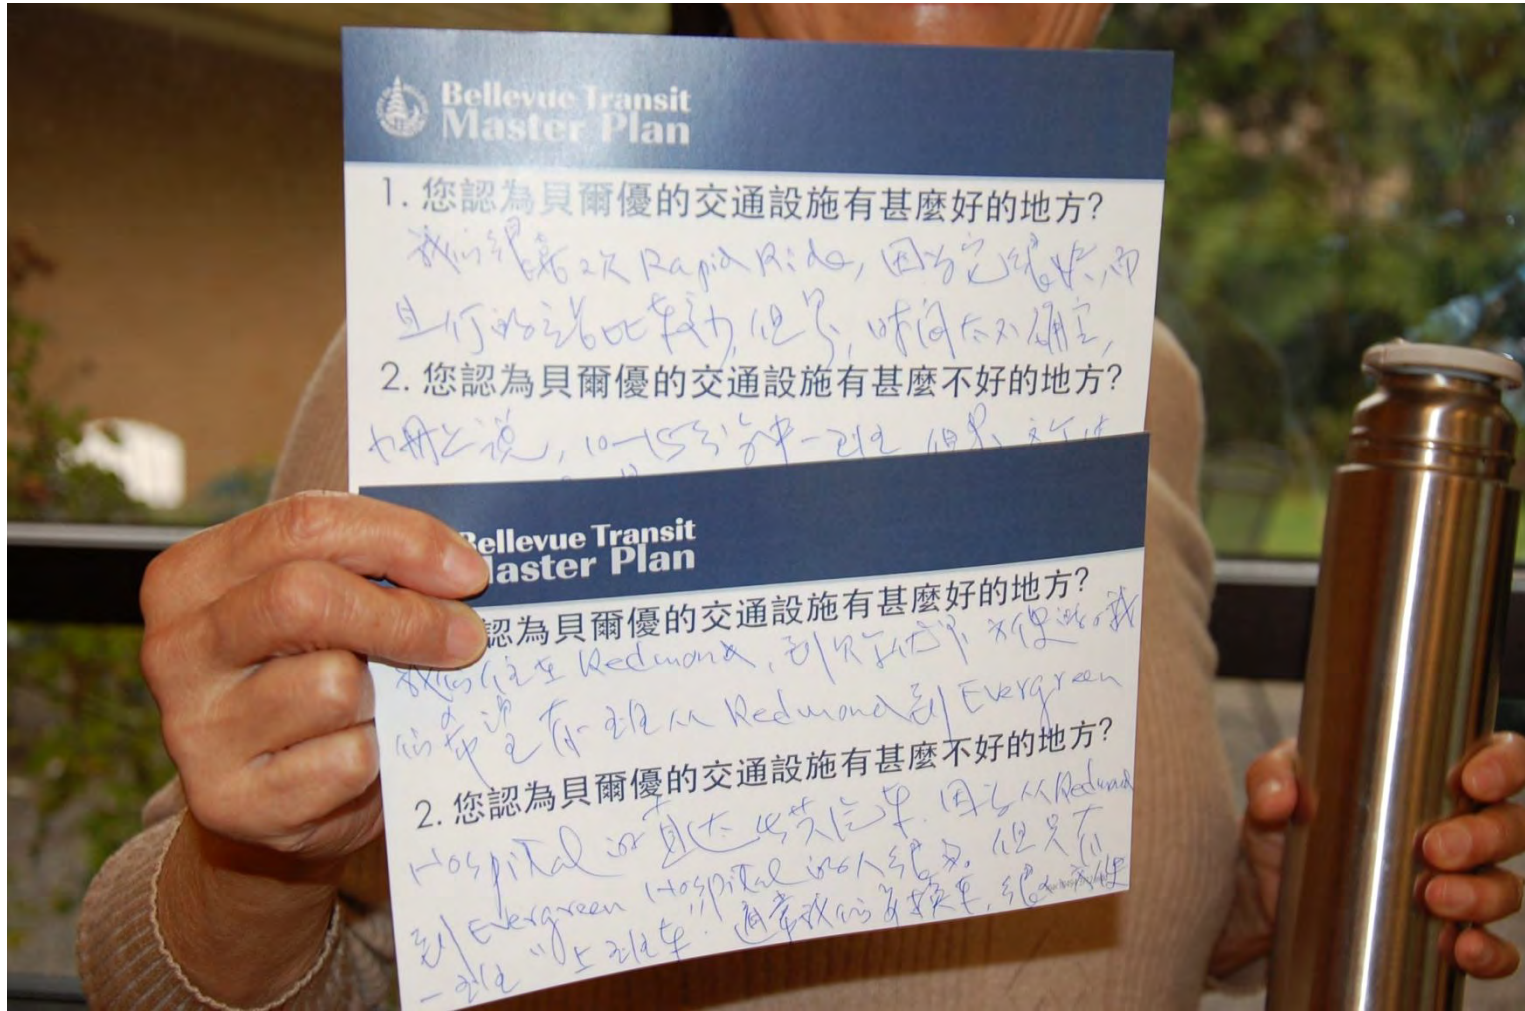 Bellevue Transit
Master Plan
1. 您認為貝爾優的交通設施有甚麼好的地方?
我们很喜欢 Rapid Ride, 因为它很快, 而
且停的站比较少, 但是, 时间太不确定,
2. 您認為貝爾優的交通設施有甚麼不好的地方?
册上说, 10-15分钟一班 但是
Bellevue Transit
Master Plan
認為貝爾優的交通設施有甚麼好的地方?
我们住在 Redmond, 到 方便 我
们希望有一班从 Redmond 到 Evergreen
2. 您認為貝爾優的交通設施有甚麼不好的地方?
Hospital 的直达公共汽车. 因为从 Redmond
到 Evergreen Hospital 的人很多。但只有
一班 "上班车". 通常我们要换车, 很不方便